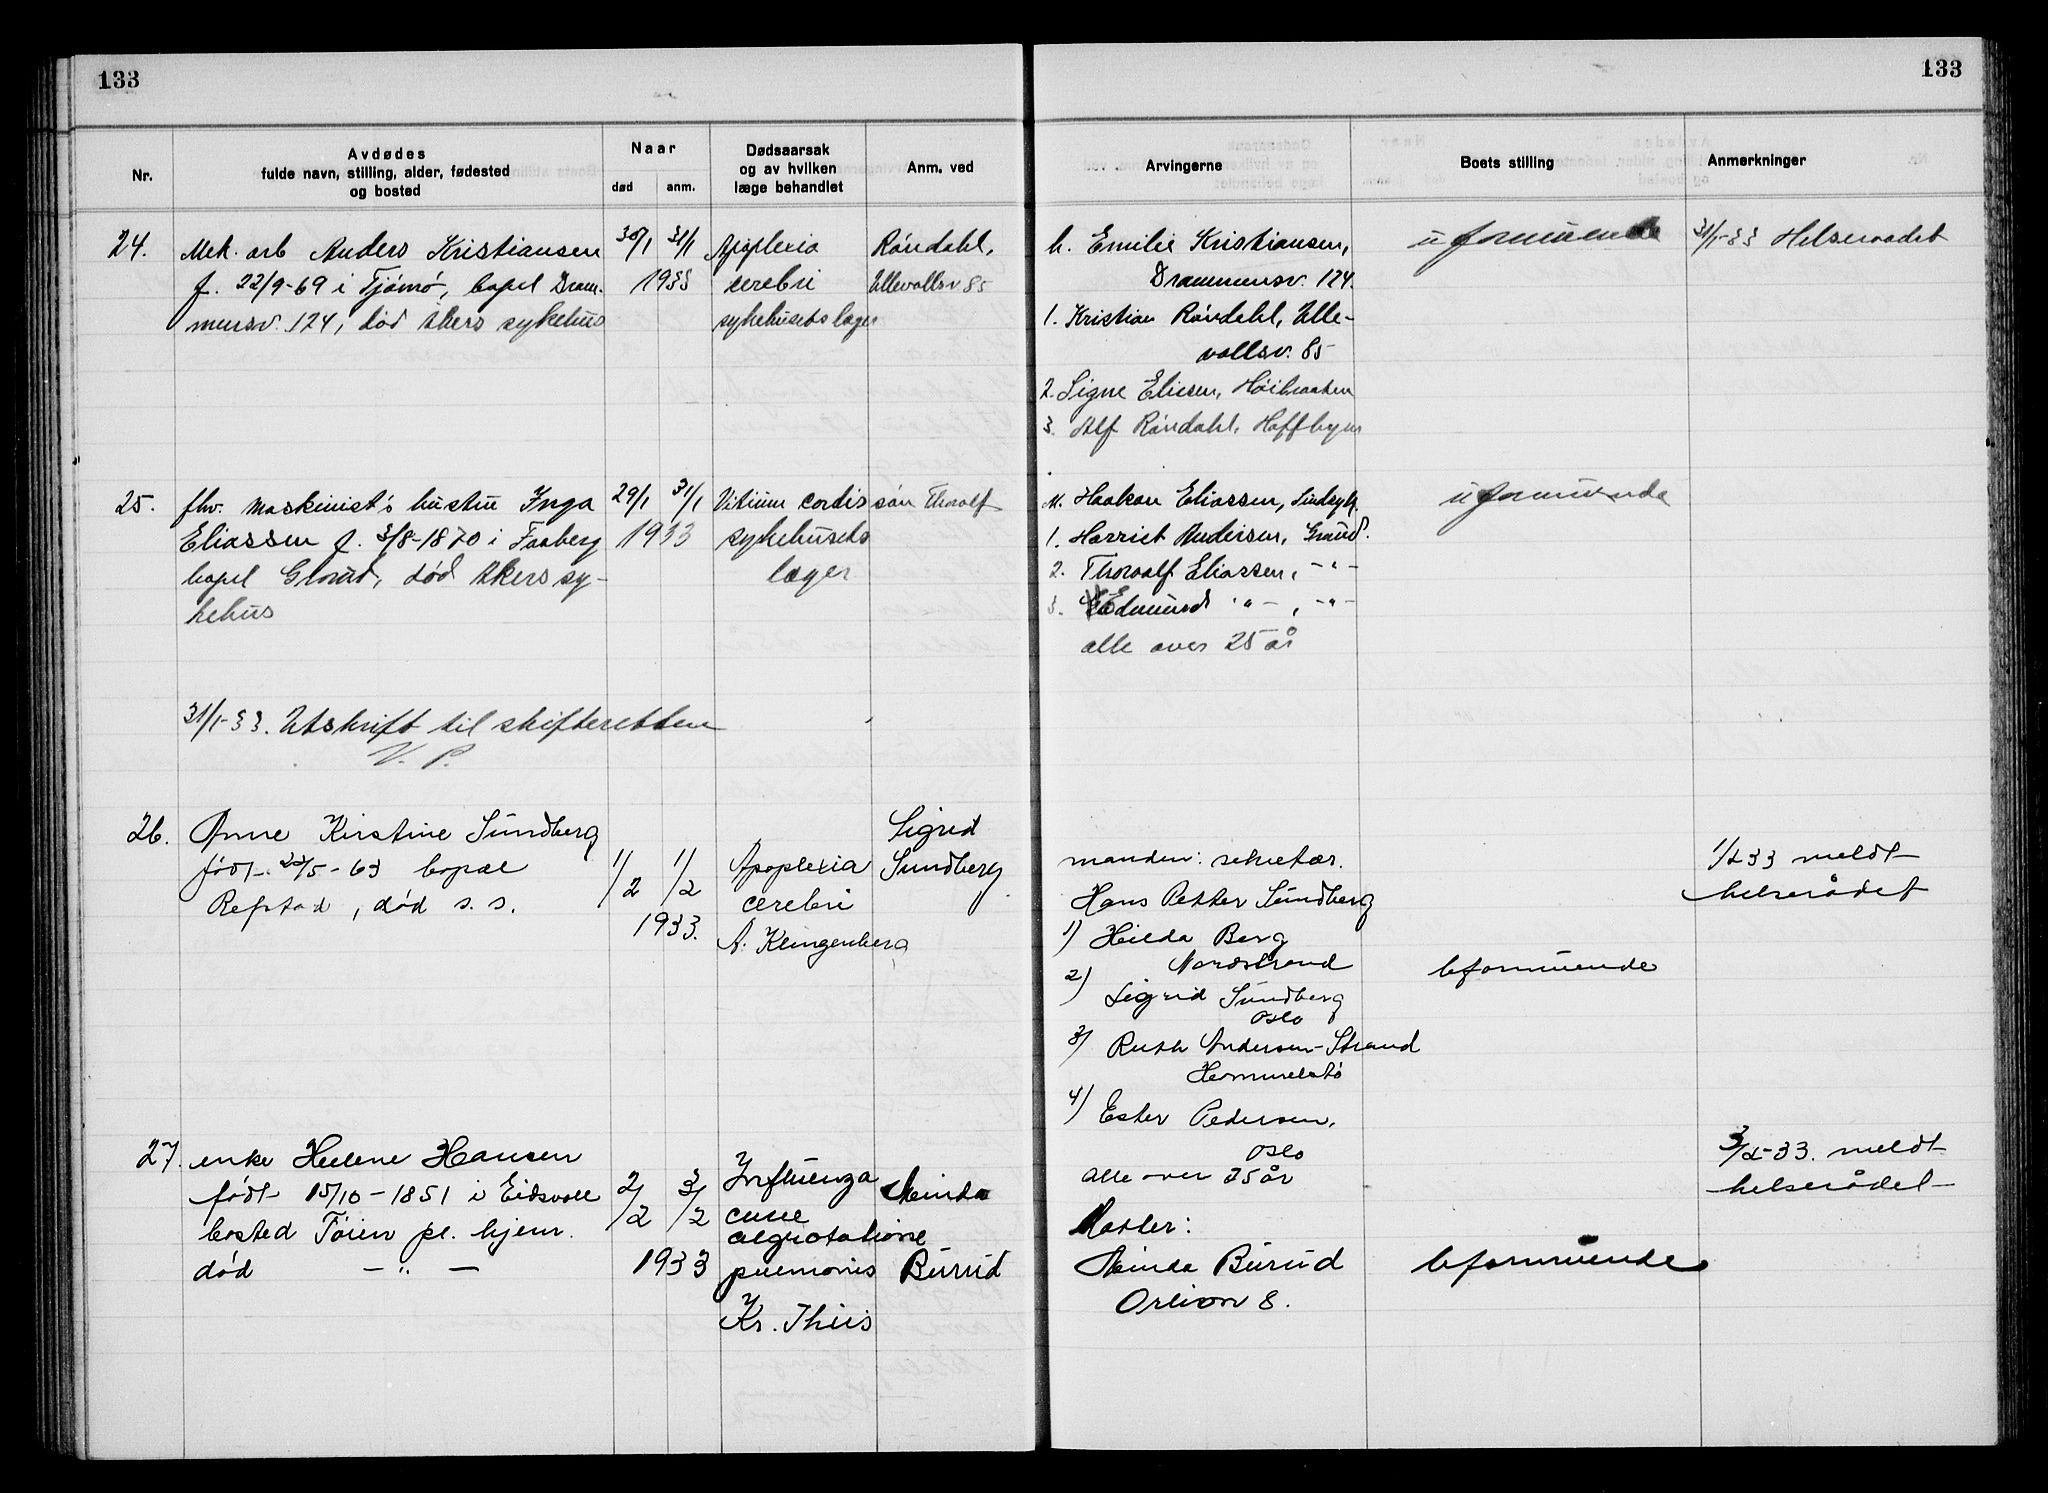 133
133
Nr.
Avdødes
fulde navn, stilling, alder, fødested
og bosted
Naar
død
anm.
Dødsaarsak
og av hvilken
læge behandlet
Anm. ved
Arvingerne
Boets stilling
Anmerkninger
24.
Mek. arb Anders Kristiansen
f. 22/9-69 i Tjømø, bopel Dram-
mensv. 124, død Akers sykehus
30/1 31/1
1933
Apoplexia
cerebri
sykehusets læger
Røndahl,
Ullevollsv 85
h. Emilie Kristiansen,
Drammensv. 124.
1. Kristian Røndahl, Ulle-
vollsv. 85
2. Signe Eliesen, Høibraaten
3. Alf Røndahl, Hoffbyen
uformuende
31/1-33 Helseraadet
25.
fhv. maskinist's hustru Inga
Eliassen f. 3/8-1870 i Faaberg
bopel Grorud, død Akers sy-
kehus
29/1 31/1
1933
Vitium cordis
sykehusets
læger
søn Thoralf
M. Haakon Eliassen,
1. Harriet Andersen, Grorud.
2. Thoralf Eliassen, -"-
3. Edmund -"-, -"-
alle over 25 år
uformuende
31/1-33. Utskrift til skifteretten
V. P.
26.
Anne Kirstine Sundberg
født 22/5-63 bopæl
Refstad, død s. s.
1/2 1/2
1933.
Apoplexia
cerebri
A. Klingenberg
Sigrid
Sundberg
manden: sekretær.
Hans Petter Sundberg
1) Hilda Berg
Nordstrand
2) Sigrid Sundberg
Oslo
3) Ruth Andersen-Strand
Hemmelstø
4) Ester Pedersen,
Oslo
alle over 25 år
uformuende
1/2 33 meldt
helserådet
27.
enke Helene Hansen
født 15/10-1851 i Eidsvoll
bosted Tøien pl. hjem.
død -"-
2/2 3/2
1933
Influenza
cum
aegrotatione
pulmonis
Kr. Thiis
Minda
Burud
Datter:
Minda Burud
Orlion 8.
uformuende
3/2-33. meldt
helserådet